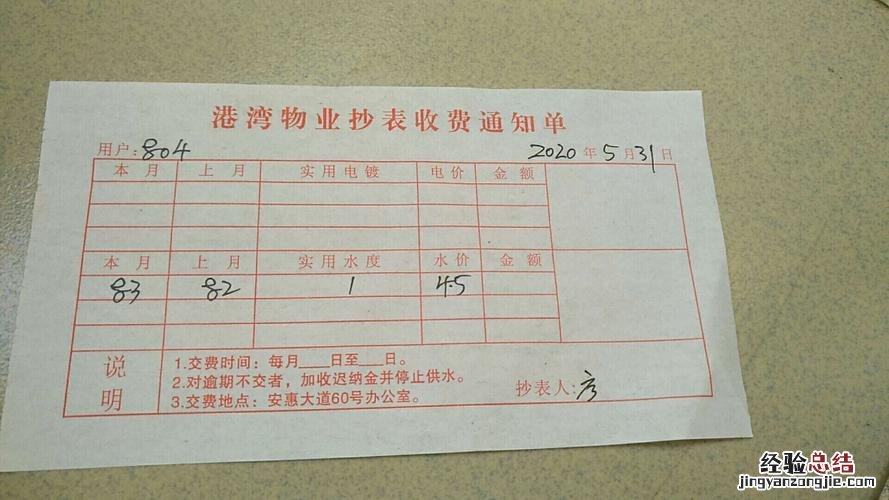 港湾物业抄表收费通知单
用户:804 2020年5月31日
本月 上月 实用电镀 电价 金额
本月 上月 实用水度 水价 金额
83 82 1 4.5
说明
1.交费时间：每月___日至___日。
2.对逾期不交者，加收迟纳金并停止供水。
3.交费地点：安惠大道60号办公室。
抄表人:
经验总结
jingyanzongjie.com